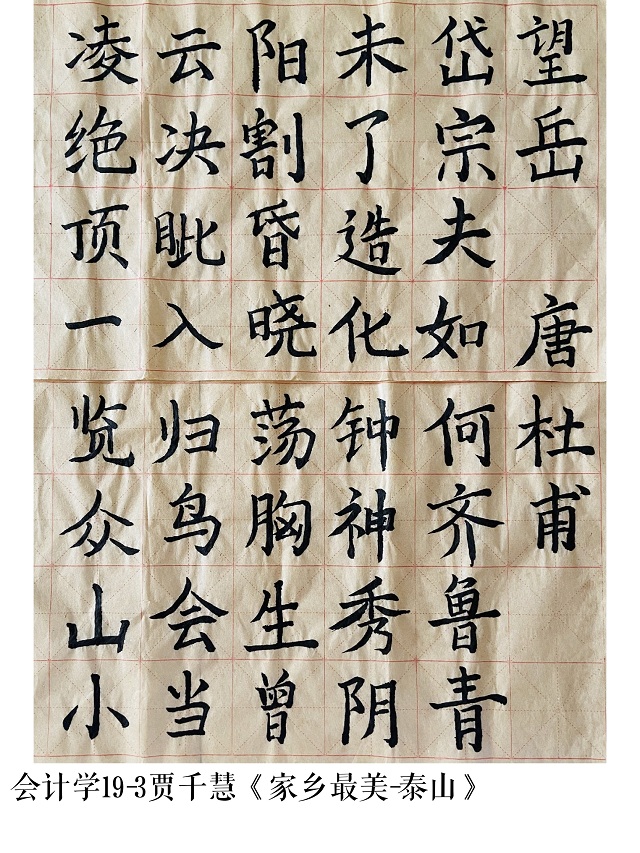 望岳 唐杜甫
岱宗夫如何齐鲁青
未了造化钟神秀阴
阳割昏晓荡胸生曾
云决眦入归鸟会当
凌绝顶一览众山小
会计学19-3贾千慧《家乡最美-泰山》